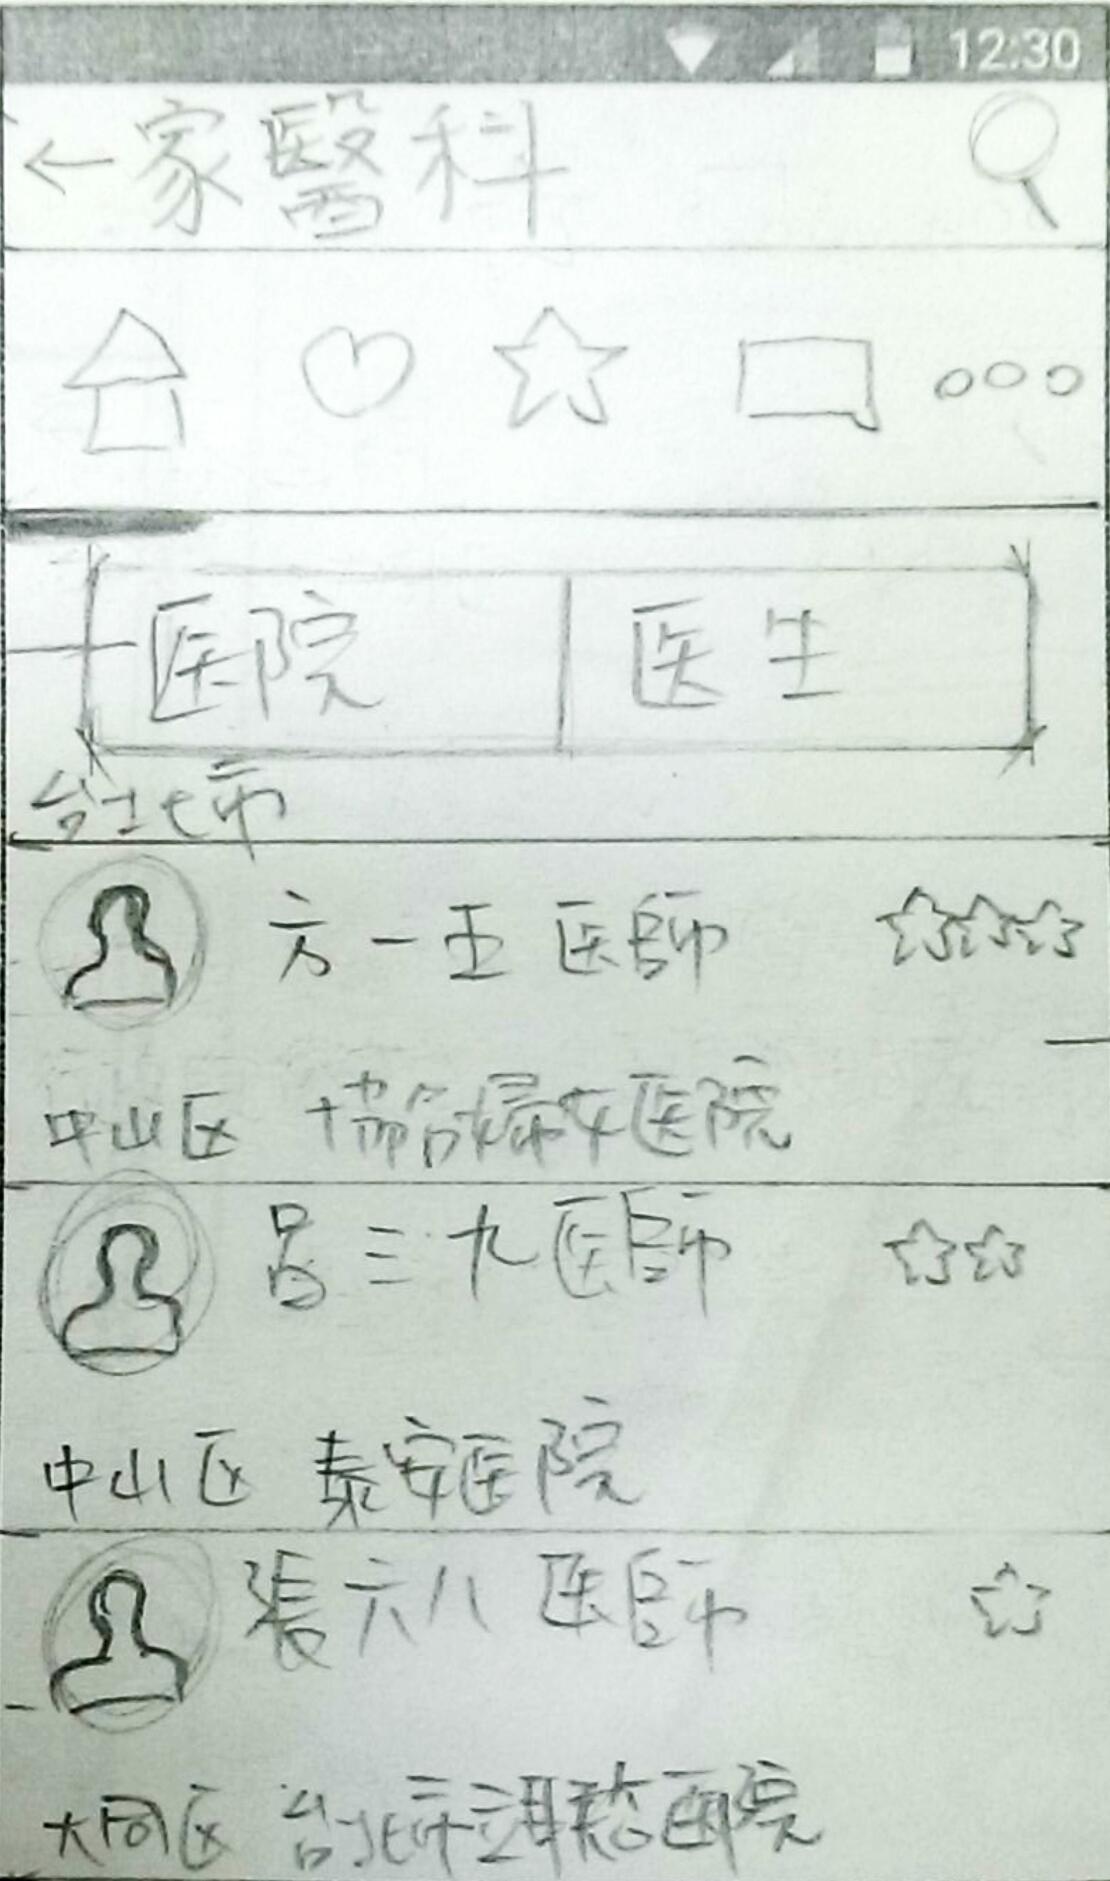 12:30
←家醫科
医院 医生
台北市
方一王医師
中山区 協合婦女医院
呂三九医師
中山区 泰安医院
張六八医師
大同区 台北市立联合医院